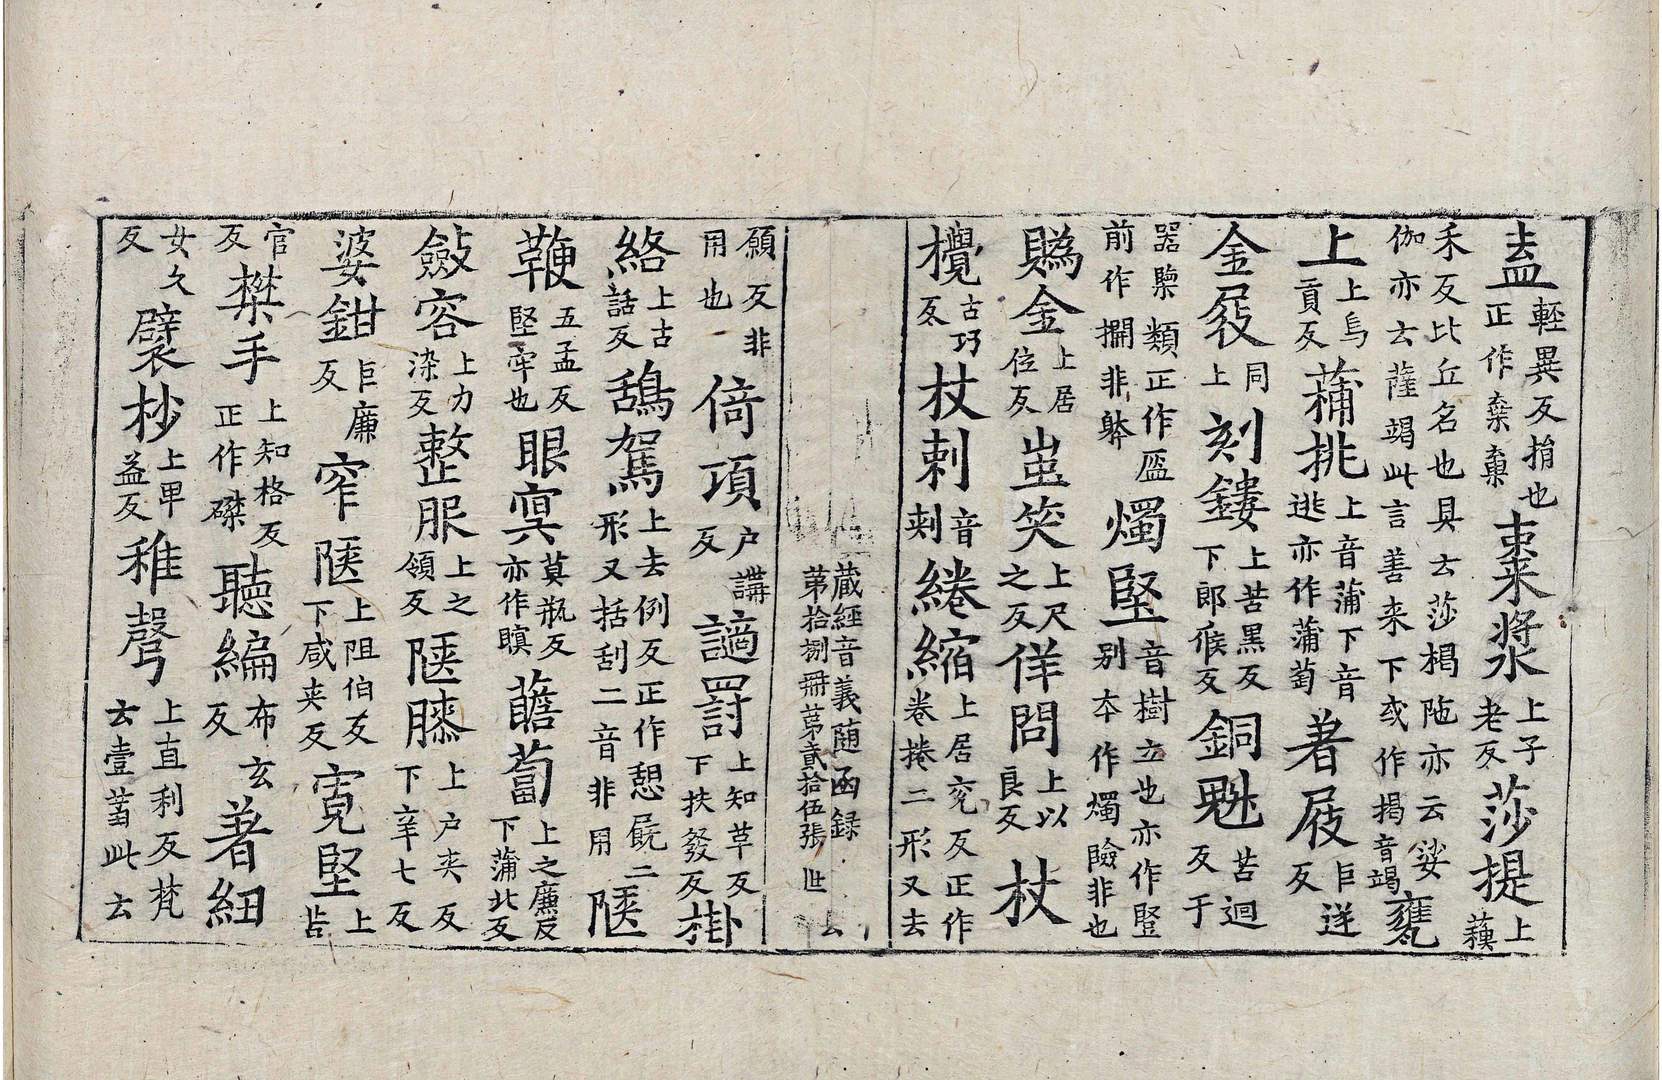 盍輕異反揹也正作棄棄棗漿上子老反莎提上蘱
禾反比丘名也具云莎楬陁亦云娑伽亦云薩竭此言善来下或作揭音竭甕
上上烏貢反蒱挑上音蒲下音逃亦作蒲萄著屐巨逆反
金屐同上刻鏤上苦黑反下郎候反銅魁苦迴反于
器檠類正作匜前作㭠非躰燭竪音樹立也亦作竪别夲作燭險非也
賜金上居位反蚩笑上尺之反佯問上以良反杖
欖古巧反杖刺音刾綣縮上居兖反正作卷捲二形又去
蔵經音義随函録
第拾捌冊第貳拾伍張世
願反非用也倚項户講反謫罰上知草反下扶發反掛
絡上古話反鵚駕上去例反正作憩㞃二形又括刮二音非用陿
鞕五孟反堅牢也眼㝠莫瓶反亦作瞑薝蔔上之廉反下蒲北反
斂容上力染反整服上之領反陿膝上户夹反下辛七反
婆鉗巨廉反窄陿上阻伯反下咸夹反寬堅上苦
官反桀手上知格反正作磔聽編布玄反著紐
女久反襞杪上甲益反稚聲上直利反梵云壹蓄此云